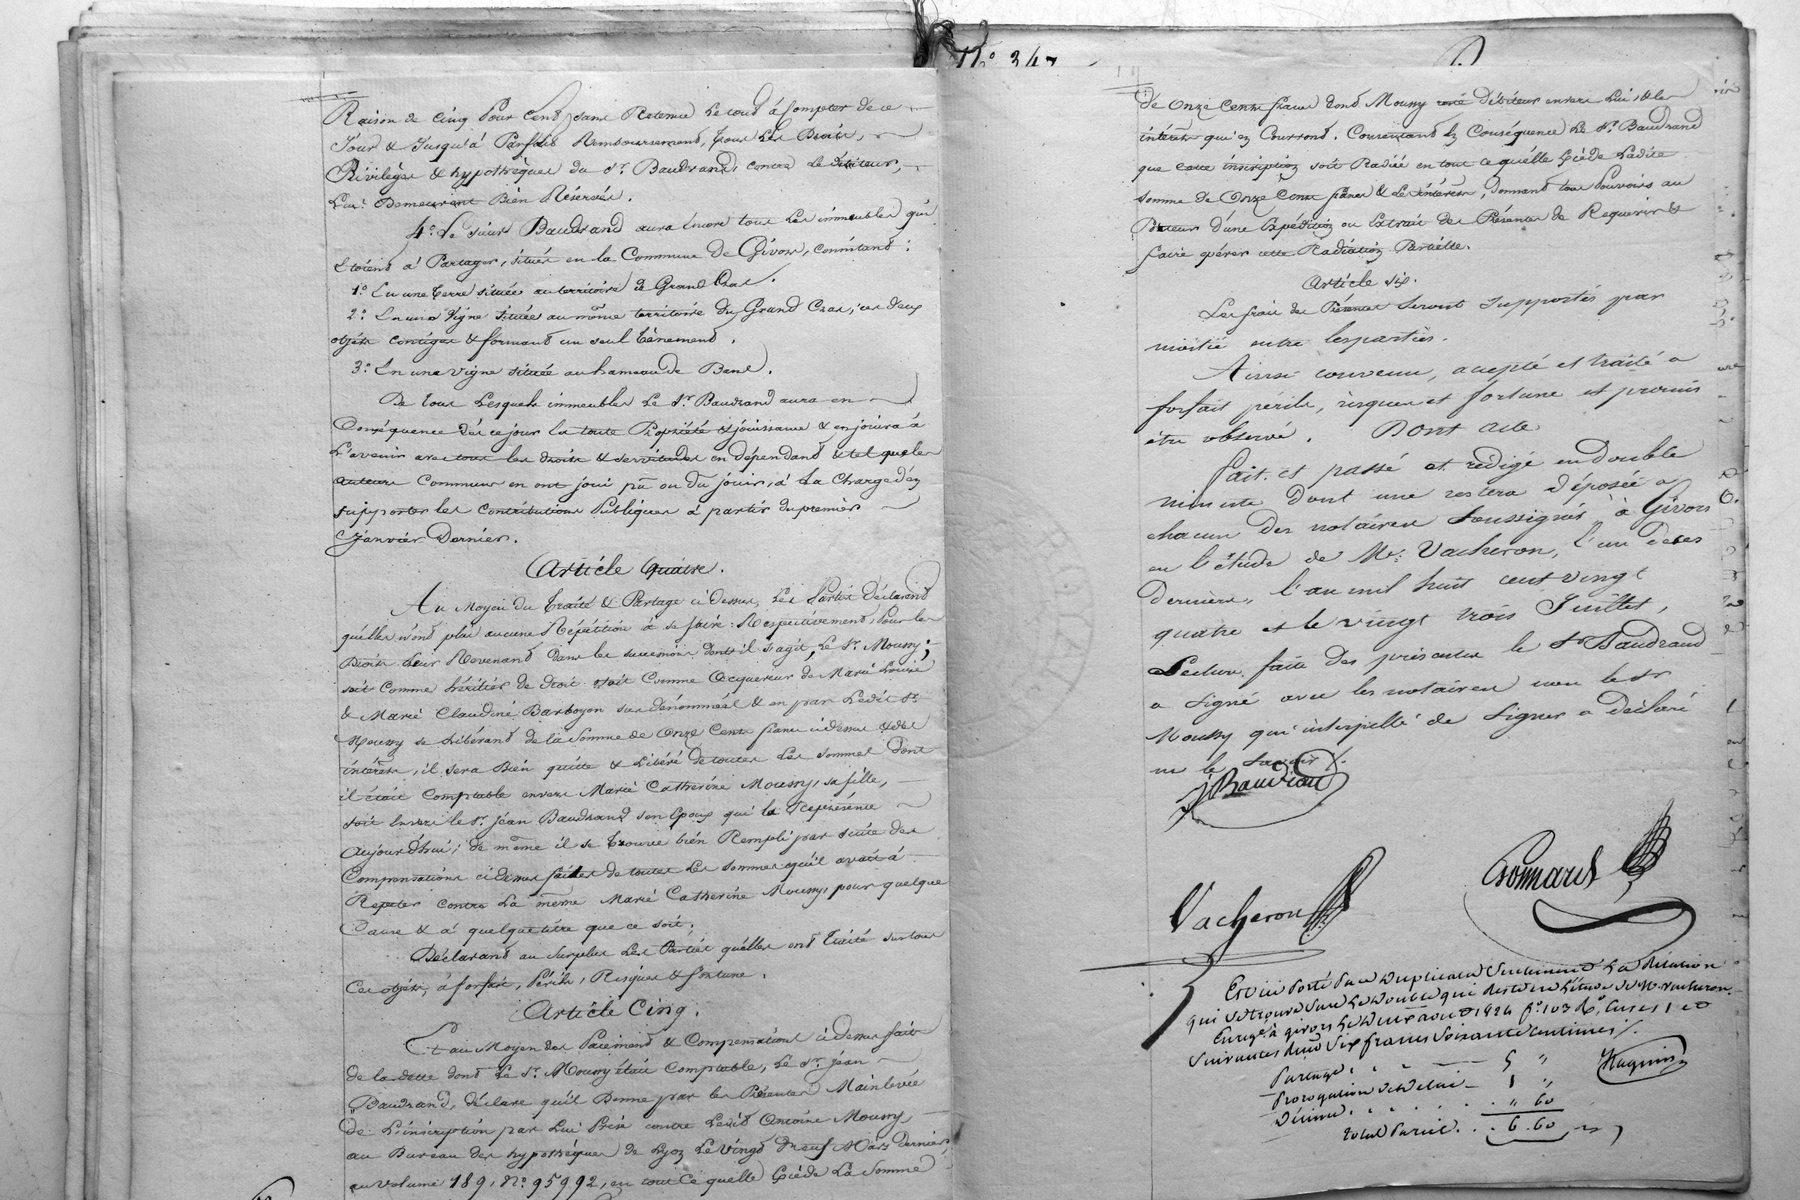 Raison de Cinq Pour Cent, sans Retenue Le tout à Compter de ce
Jour & Jusqu'à Parfait Remboursement, tous Les Droits,
Privilèges & hypothèques du Sr. Baudrand, contre Le débiteur,
Lui Demeurant Bien Réservés.
4.° Le sieur Baudrand aura Encore tous Les immeubles qui
Etoient à Partager, situés en la Commune de Givors, consistant:
1.° En une terre située au territoire de Grand Cras.
2.° En une Vigne située au même territoire du Grand Cras, ces deux
objets contigus & formant un seul tènement.
3.° En une Vigne située au hameau de Bans.
De tous Lesquels immeubles Le Sr. Baudrand aura en
Conséquence dès ce jour la toute Propriété & jouissance & en jouira à
L'avenir avec tous les droits & servitudes en dépendant & tel que les
auteurs Communs en ont joui pû ou dû jouir, à La Charge d'en
supporter les Contributions Publiques à partir du premier
Janvier Dernier.
Article Quatre.
Au Moyen du traité & Partage ci dessus, Les Parties Déclarent
qu'elles n'ont plus aucune Répétition à se faire Respectivement, Pour les
Droits Leur Revenant Dans les successions dont il s'agit, Le Sr. Moussy,
soit Comme héritier de droit, soit Comme Acquéreur de Marie Louise
& Marie Claudine Barboyon sus dénommées & en par Ledit Sr.
Moussy se Libérant de la Somme de Onze Cents francs ci dessus & des
intérêts, il sera Bien quitte & Libéré de toutes Les sommes Dont
il étoit Comptable envers Marie Catherine Moussy, sa fille,
soit Envers le Sr. Jean Baudrand son Epoux qui la Représente
Aujourd'hui; de même il se trouve bien Rempli par suite des
Compensations ci dessus faites de toutes Les sommes qu'il avait à
Répéter Contre La même Marie Catherine Moussy, pour quelque
Cause & à quelque titre que ce soit.
Déclarant au Surplus Les Parties qu'elles ont Traité sur tous
Ces objets, à forfait, Périls, Risques & fortune.
Article Cinq.
Et au Moyen des Paiement & Compensations ci dessus faits
de la dette dont Le Sr. Moussy étoit Comptable, Le Sr. Jean
Baudrand, déclare qu'il Donne par les Présentes Mainlevée
De L'inscription par Lui Prise contre Ledit Antoine Moussy
au Bureau des hypothèques de Lyon Le Vingt Neuf Mars dernier,
au Volume 189, N.° 95992, en tout Ce qu'elle Excède La Somme
N.° 347
de Onze Cents francs dont Moussy reste Débiteur envers Lui, & les
intérêts qui en Courront. Consentant En Conséquence Le Sr. Baudrand
que cette inscription soit Radiée en tout ce qu'elle Excède Ladite
somme de Onze Cents francs & Les intérêts, Donnant tous Pouvoirs au
Porteur d'une Expédition ou Extrait des Présentes de Requérir &
faire opérer cette Radiation Partielle.
Article Six.
Les frais des Présentes Seront Supportés par
moitié entre les parties.
Ainsi convenu, accepté et traité à
forfait périls, risques et fortune et promis
être observé. Dont acte
fait et passé et rédigé en double
minute dont une restera déposée à
chacun des notaires soussignés à Givors
en l'étude de Me. Vacheron, l'un de ces
derniers, l'an mil huit cent vingt
quatre et le vingt trois Juillet,
Lecture faite des présentes le Sr Baudrand
a signé avec les notaires non le Sr
Moussy qui interpellé de signer a déclaré
ne le savoir.
J Baudran
Vacheron
Bonnard
Est ici Porté Par Duplicata Seulement La Relation
qui se trouve sur Le Double qui Reste en L'étude de Me. Vacheron.
Enregé. à givors Le Deux août 1824 f.° 103 R.° Cases 1 et
Suivantes Reçu Six francs Soixante Centimes.
Partage 5 "
Prorogation de délai 1 "
Décime " 60
total Pareil 6.60